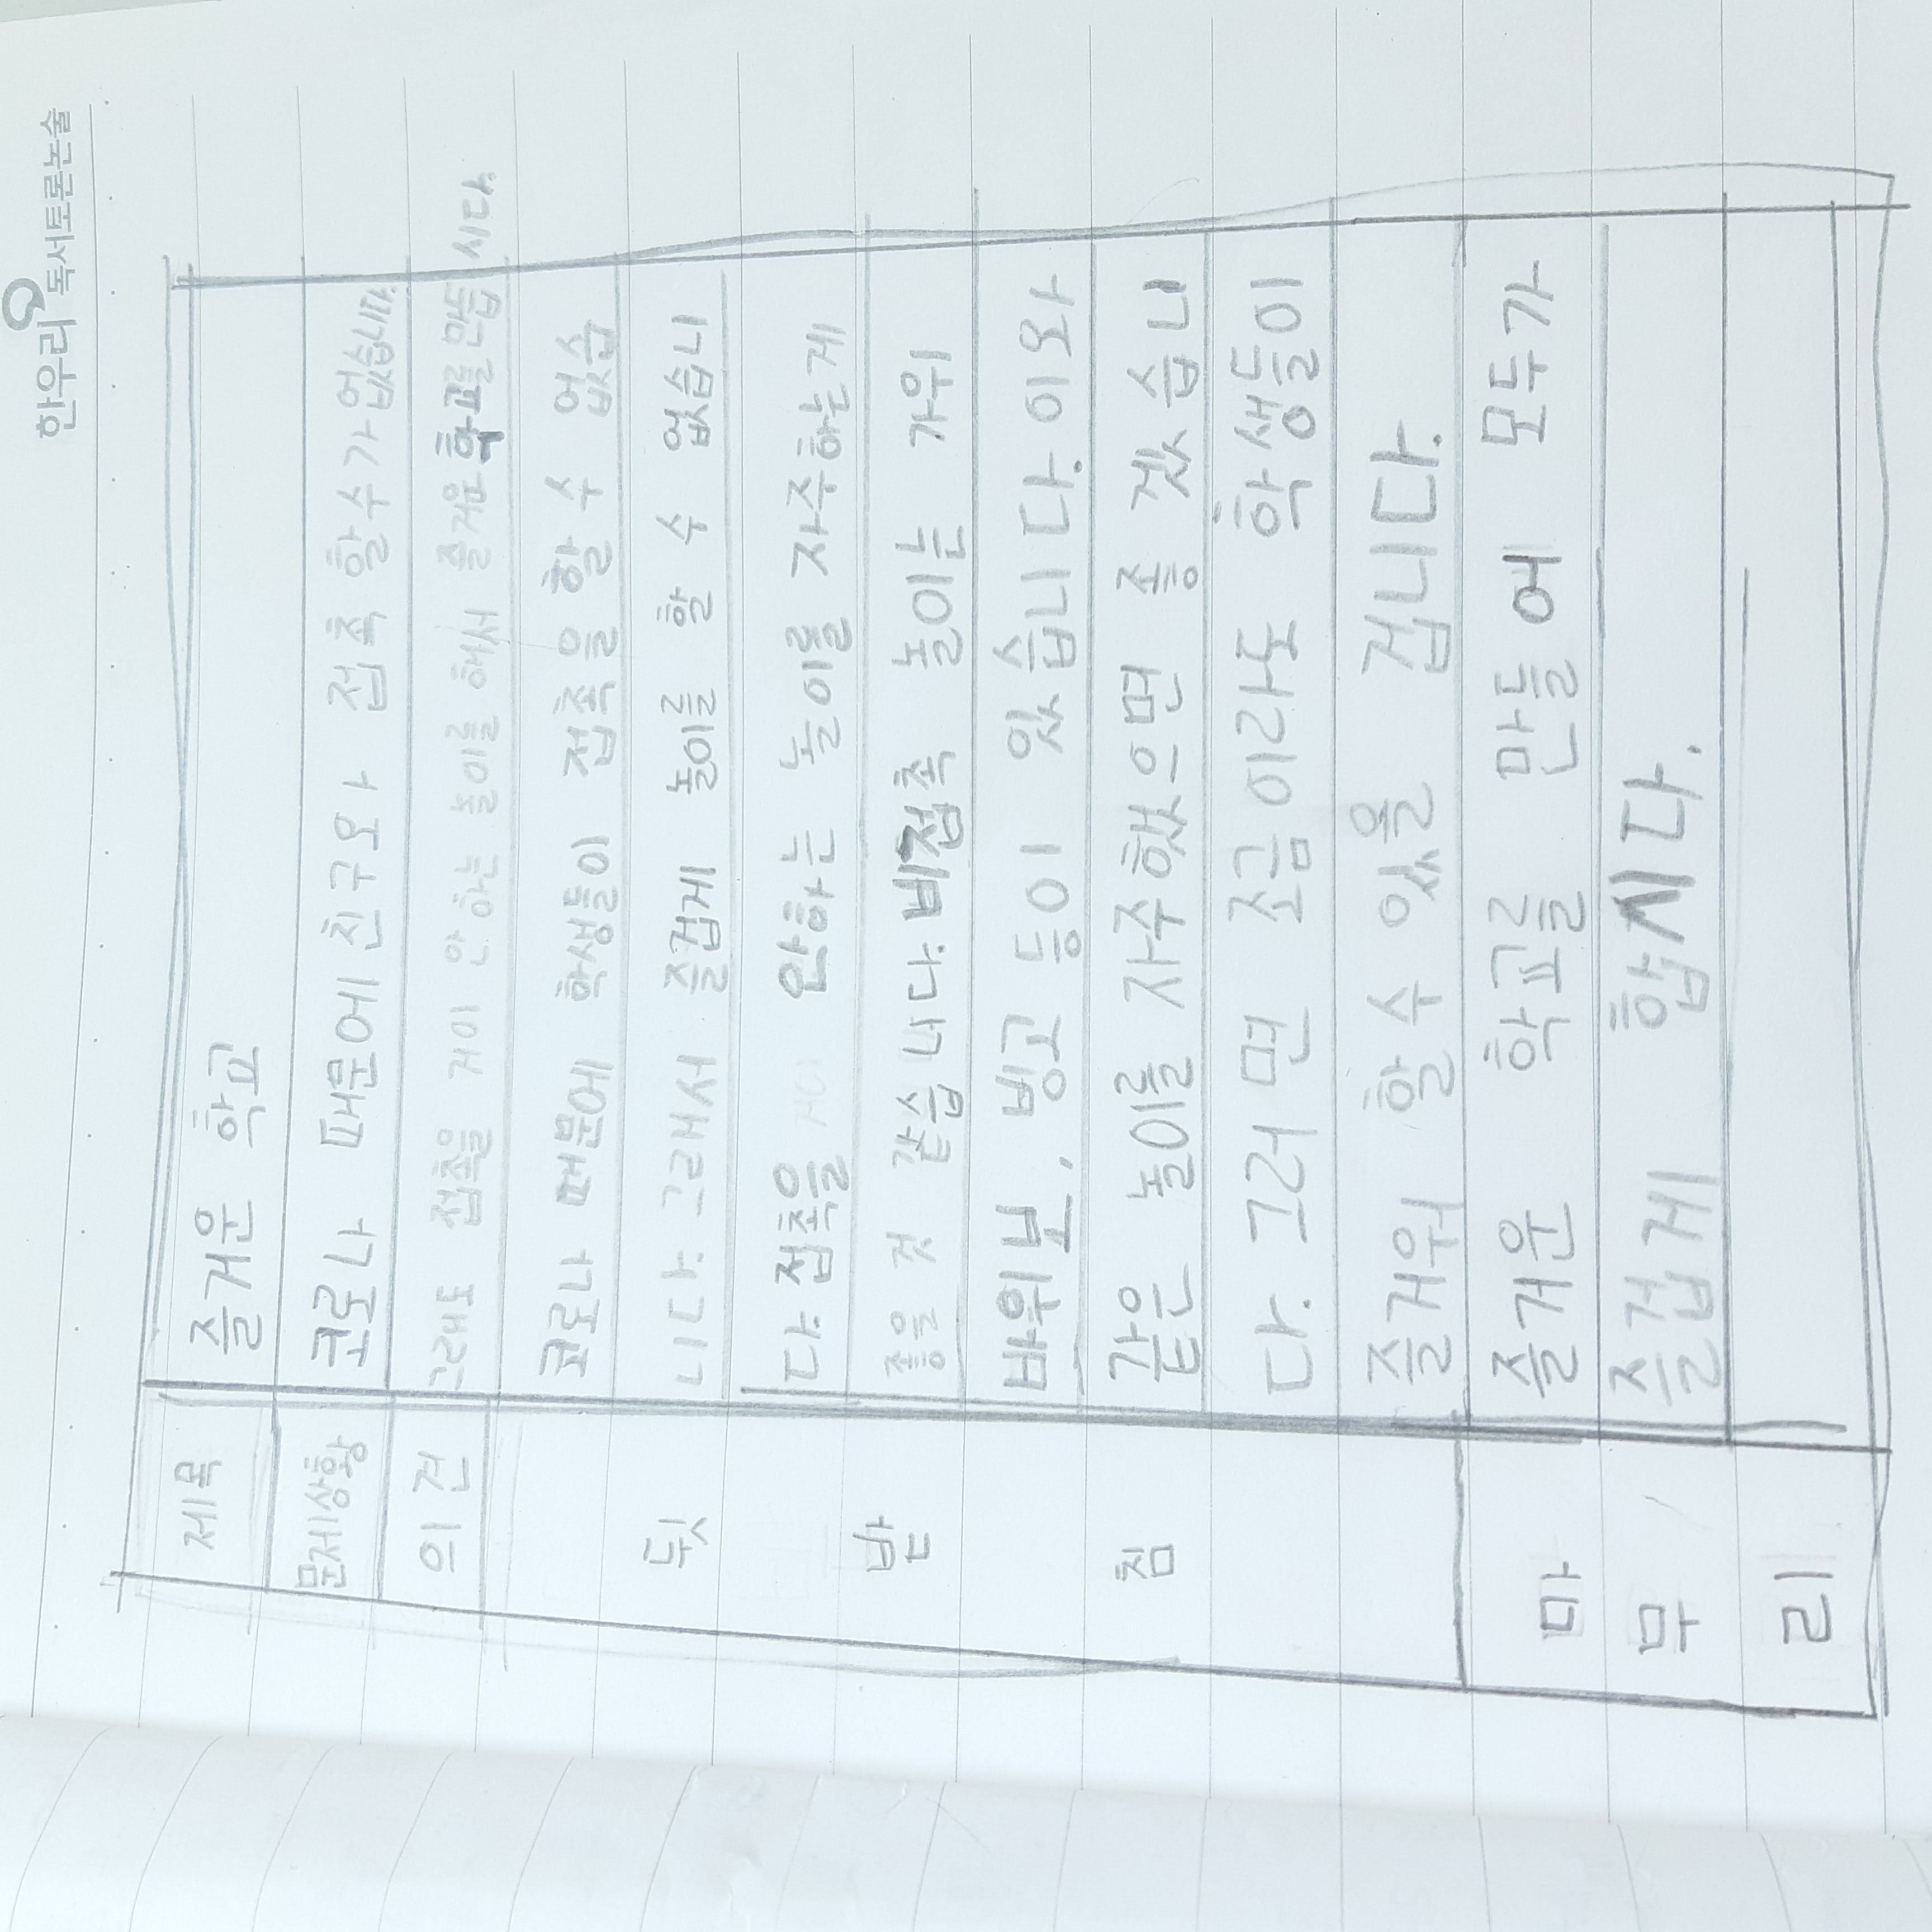 한우리 독서토론논술
제목 즐거운 학교
문제상황 코로나 때문에 친구와 접촉 할수가 없습니다.
의견 그래도 접촉을 거이 안 하는 놀이를 해서 즐거운 학교를 만듭시다.
코로나 때문에 학생들이 접촉을 할 수 없습
니다. 그래서 즐겁게 놀이를 할 수 없습니
뒷 다. 접촉을 안하는 놀이를 자주하는게
받 좋을 것 같습니다. 비접촉 놀이는 가위
바위보, 빙고 등이 있습니다. 이와
침 같은 놀이를 자주했으면 좋겠습니
다. 그러면 조금이라도 학생들이
즐거워 할 수 있을 겁니다.
마 즐거운 학교를 만들어 모두가
무 즐겁게 합시다.
리